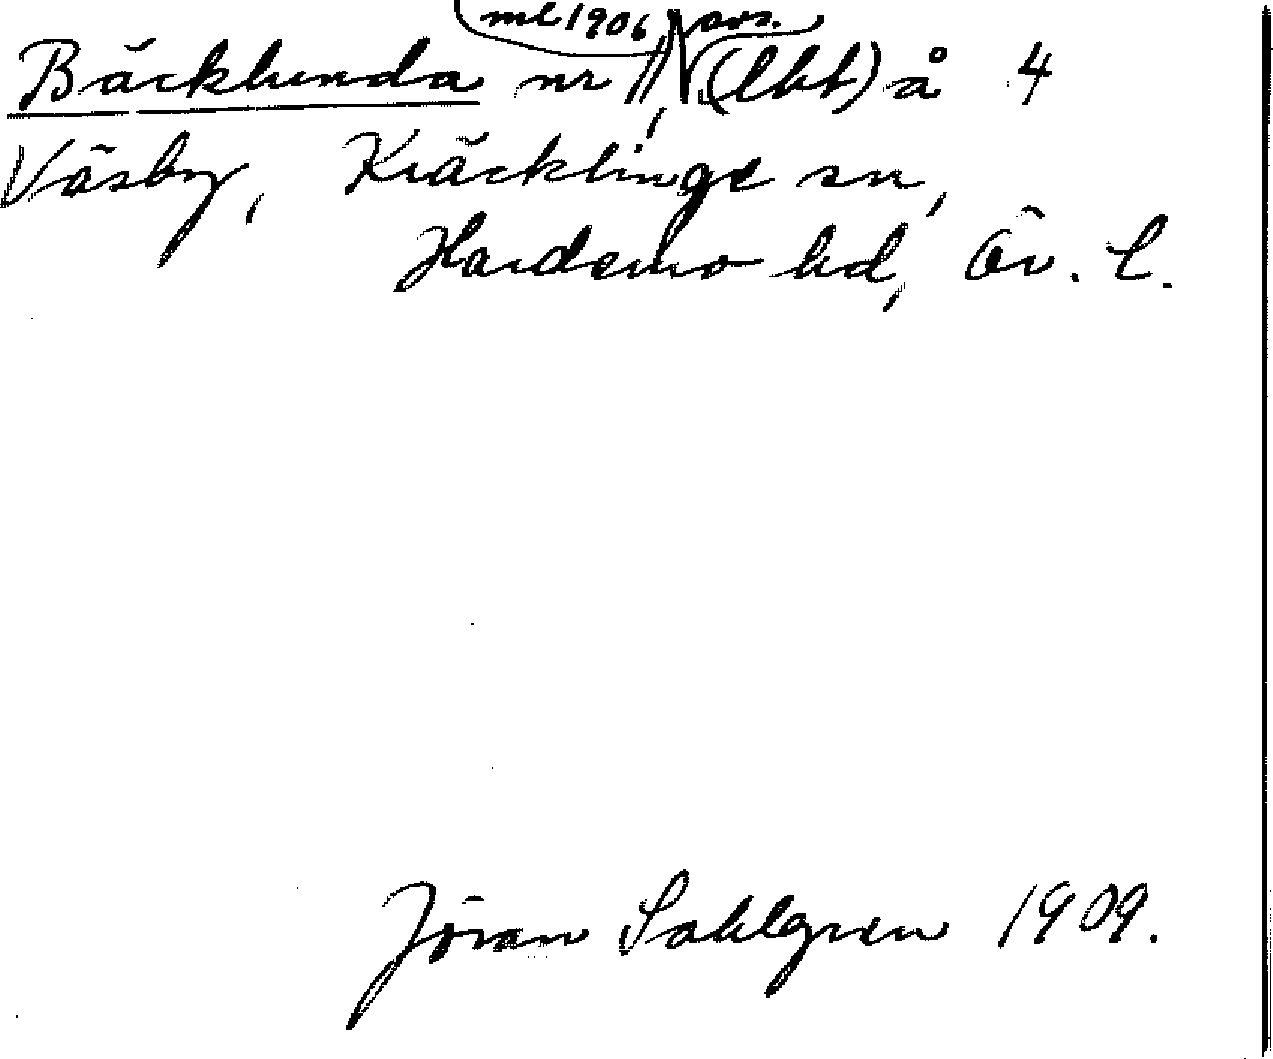 ml 1906 avs.
Bäcklunda nr 11, (lht) å 4
Väsby, Kräcklinge sn,
Hardemo hd, Ör. l.
Jöran Sahlgren 1909.